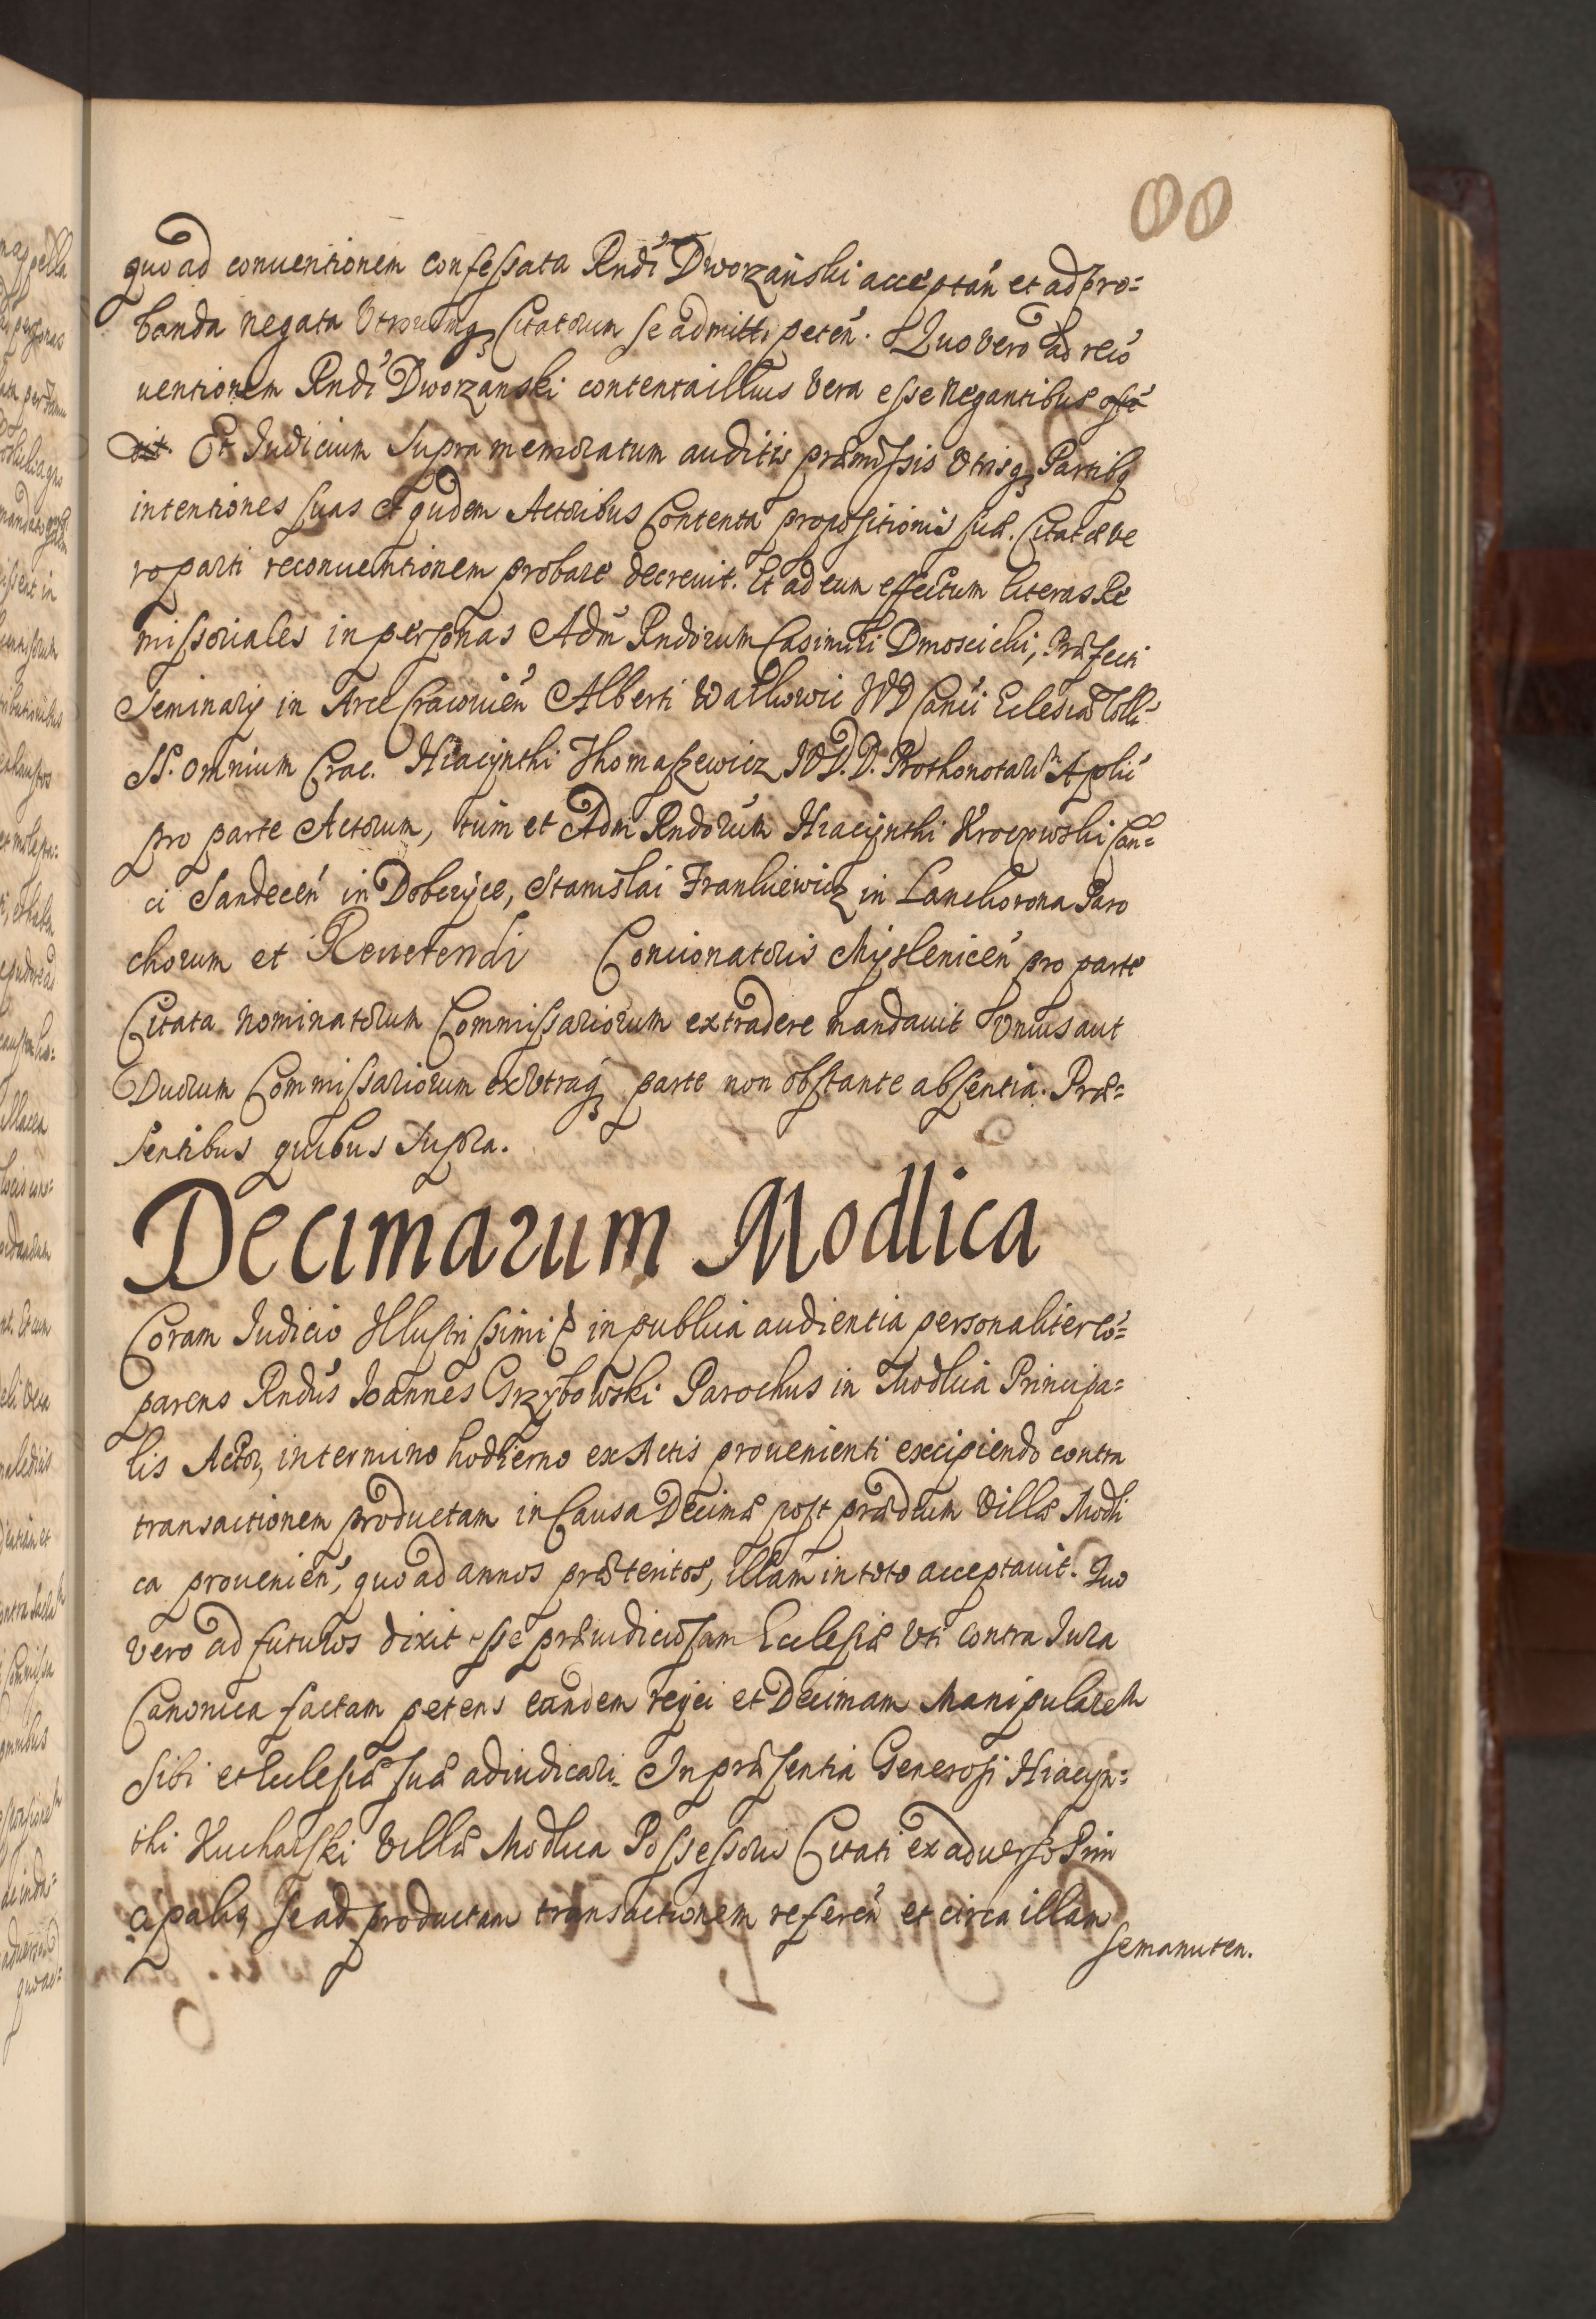 00
quo ad conuentionem confessata Rndi Dworzański acceptań et ad pro=
banda negata Utrorumq Citatorum se admitti peteń. Quo vero ad recō
uentionem Rndi Dworzanski contenta illius vera esse negantibus
Et Iudicium supra memoratum auditis præmissis Utrisq Partibq
intentiones suas et quidem Actoribus Contenta propositionis suæ. Citatæ ve
ro parti reconuentionem probare decreuit. Et ad eum effectum literas Re
missoriales in personas Adm Rndorum Casimiri Dmoscicki, Præfecti
Seminarij in Arce Cracouień Alberti Walkowic IVD Canci Eclesiæ Colli
SS. omnium Crac. Hiacynthi Thomaszewicz IVD. D. Prothonotarii Aplici
pro parte Actorum, tum et Adm Rndorum Hiacynthi Kroczowski Can=
ci Sandeceń in Dobczyce, Stanislai Frankiewicz in Lanckorona Paro
chorum et Reuerendi Concionatoris Mysleniceń pro parte
Citata nominatorum Commissariorum extradere mandauit Vnius aut
Duorum Commissariorum ex Vtraq parte non obstante absentia. Præ=
sentibus quibus supra.
Decimarum Modlica
Coram Iudicio Illustrissimi P in publica audientia personaliter cō=
parens Rndus Ioannes Grzybowski Parochus in Modlica Principa=
lis Actor, in termino hodierno ex Actis prouenienti excipiendo contra
transactionem productam in Causa Decimæ post prædium Villæ Modli
ca prouenień, quo ad annos præteritos, illam in toto acceptauit. Quo
vero ad futuros dixit esse præiudiciosam Ecclesiæ Vti contra Iura
Canonica factam petens eandem reijci et Decimam Manipularem
sibi et Eclesiæ suæ adiudicari. In præsentia Generosi Hiacyn=
thi Kucharski Villæ Modlica Possessoris Citati ex aduerso Prin
cipaliq se ad productam transactionem refereń et circa illam
se manuten.